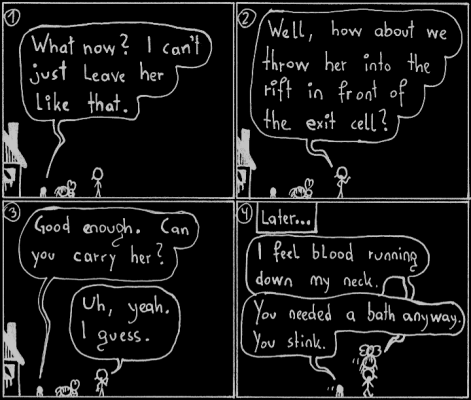 1
What now? I can't
just leave her
like that.
2
Well, how about we
throw her into the
rift in front of
the exit cell?
3
Good enough. Can
you carry her?
Uh, yeah.
I guess.
4
Later...
I feel blood running
down my neck.
You needed a bath anyway.
You stink.